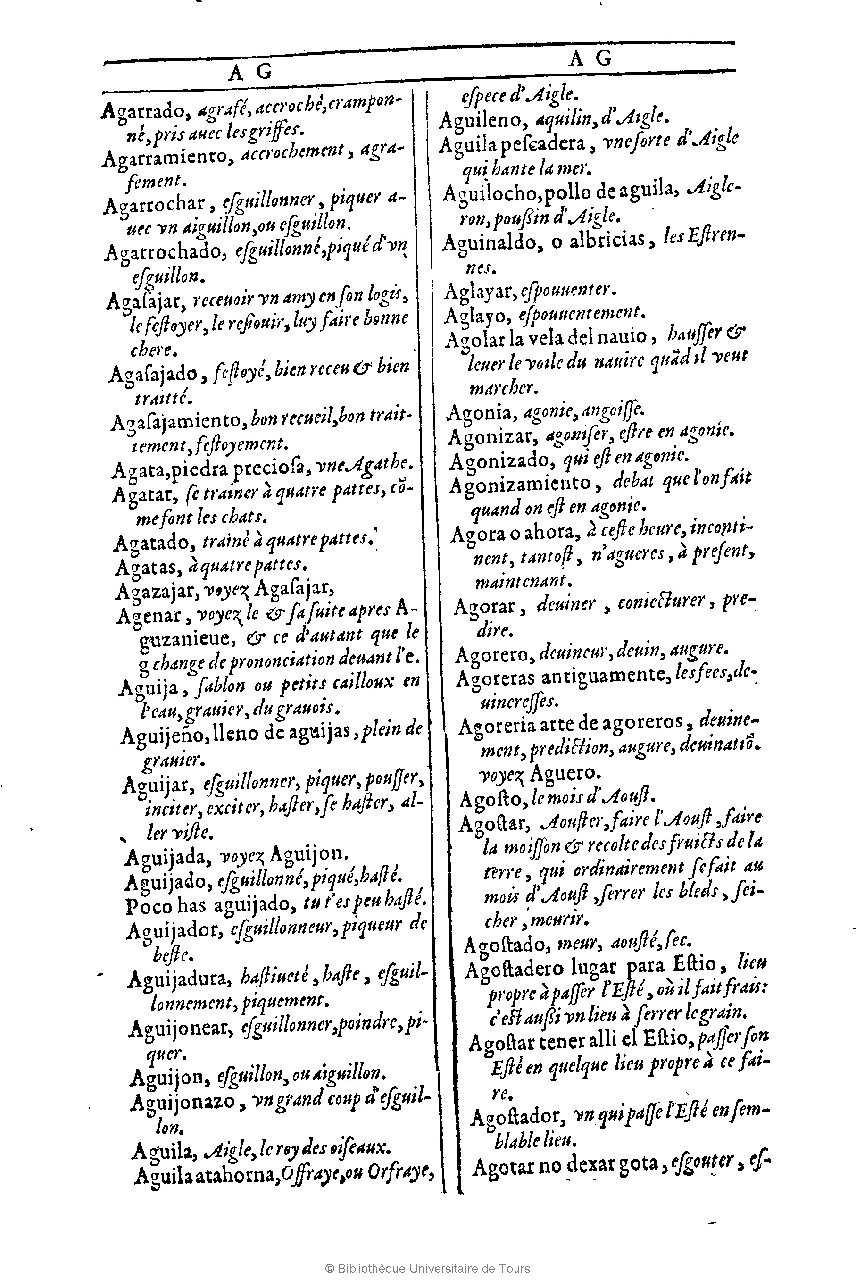 A G
Agarrado, agrafé, accroché, crampon-
né, pris auec les griffes.
Agarramiento, accrochement, agra-
fement.
Agarrochar, eſguillonner, piquer a-
uec vn aiguillon, ou eſguillon.
Agarrochado, eſguillonné, piqué d'vn
eſguillon.
Agaſajar, receuoir vn amy en ſon logis,
le feſtoyer, le reſiouir, luy faire bonne
chere.
Agaſajado, feſtoyé, bien receu & bien
traitté.
Agaſajamiento, bon recueil, bon trait-
tement, feſtoyement.
Agata, piedra precioſa, vne Agathe.
Agatar, ſe trainer à quatre pattes, cõ-
me font les chats.
Agatado, trainé à quatre pattes.
Agatas, à quatre pattes.
Agazajar, voyez Agaſajar,
Agenar, voyez le & ſa ſuite apres A-
guzanieue, & ce d'autant que le
g change de prononciation deuant l'e.
Aguija, ſablon ou petits cailloux en
l'eau, grauier, du grauois.
Aguijeño, lleno de aguijas, plein de
grauier.
Aguijar, eſguillonner, piquer, pouſſer,
inciter, exciter, haſter, ſe haſter, al-
ler viſte.
Aguijada, voyez Aguijon.
Aguijado, eſguillonné, piqué, haſté.
Poco has aguijado, tu t'es peu haſté.
Aguijador, eſguillonneur, piqueur de
beſte.
Aguijadura, haſtiueté, haſte, eſguil-
lonnement, piquement.
Aguijonear, eſguillonner, poindre, pi-
quer.
Aguijon, eſguillon, ou aiguillon.
Aguijonazo, vn grand coup d'eſguil-
lon.
Aguila, Aigle, le roy des oiſeaux.
Aguila atahorna, Offraye, ou Orfraye,
A G
eſpece d'Aigle.
Aguileno, aquilin, d'Aigle.
Aguila peſcadera, vne ſorte d'Aigle
qui hante la mer.
Aguilocho, pollo de aguila, Aigle-
ron, pouſſin d'Aigle.
Aguinaldo, o albricias, les Eſtren-
nes.
Aglayar, eſpouuenter.
Aglayo, eſpouuentement.
Agolar la vela del nauio, hauſſer &
leuer le voile du nauire quãd il veut
marcher.
Agonia, agonie, angoiſſe.
Agonizar, agoniſer, eſtre en agonie.
Agonizado, qui eſt en agonie.
Agonizamiento, debat que l'on fait
quand on eſt en agonie.
Agora o ahora, à ceſte heure, inconti-
nent, tantoſt, n'agueres, à preſent,
maintenant.
Agorar, deuiner, coniecturer, pre-
dire.
Agorero, deuineur, deuin, augure.
Agoreras antiguamente, les fees, de-
uinereſſes.
Agoreria arte de agoreros, deuine-
ment, prediction, augure, deuinatiõ.
voyez Aguero.
Agoſto, le mois d'Aouſt.
Agoſtar, Aouſter, faire l'Aouſt, faire
la moiſſon & recolte des fruicts de la
terre, qui ordinairement ſe fait au
mois d'Aouſt, ſerrer les bleds, ſei-
cher, meurir.
Agoſtado, meur, aouſté, ſec.
Agoſtadero lugar para Eſtio, lieu
propre à paſſer l'Eſté, où il fait frais:
c'eſt auſſi vn lieu à ſerrer le grain.
Agoſtar tener alli el Eſtio, paſſer ſon
Eſté en quelque lieu propre à ce fai-
re.
Agoſtador, vn qui paſſe l'Eſté en ſem-
blable lieu.
Agotar no dexar gota, eſgouter, eſ-
© Bibliothèque Universitaire de Tours